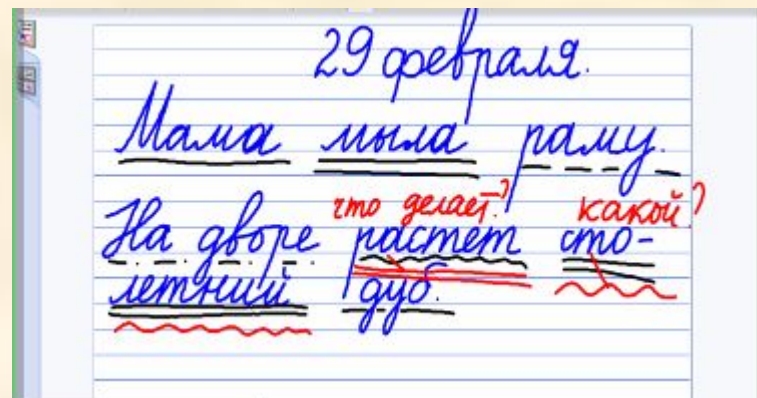 29 февраля.
Мама мыла раму.
что делает? какой?
На дворе растет сто-
летний дуб.